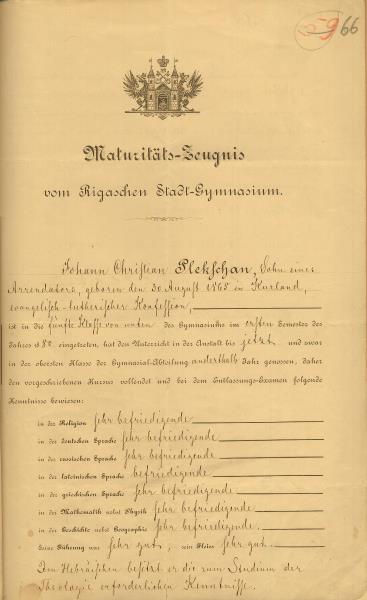 66
Maturitäts-Zeugnis
vom Rigaschen Stadt-Gymnasium.
Johann Christian Plekschan, Sohn eines
Arrendators, geboren den 30. August 1865 in Kurland,
evangelisch-lutherischer Konfession,
ist in die fünfte Klasse von unten des Gymnasiums im ersten Semester des
Jahres 1880 eingetreten, hat den Unterricht in der Anstalt bis jetzt und zwar
in der obersten Klasse der Gymnasial-Abteilung anderthalb Jahr genossen, daher
den vorgeschriebenen Kursus vollendet und bei dem Entlassungs-Examen folgende
Kenntnisse bewiesen:
in der Religion sehr befriedigende
in der deutschen Sprache sehr befriedigende
in der russischen Sprache sehr befriedigende
in der lateinischen Sprache befriedigende
in der griechischen Sprache sehr befriedigende
in der Mathematik nebst Physik sehr befriedigende
in der Geschichte nebst Geographie sehr befriedigende.
Seine Führung war sehr gut, sein Fleiss sehr gut.
Im Hebräischen besitzt er die zum Studium der
Theologie erforderlichen Kenntnisse.